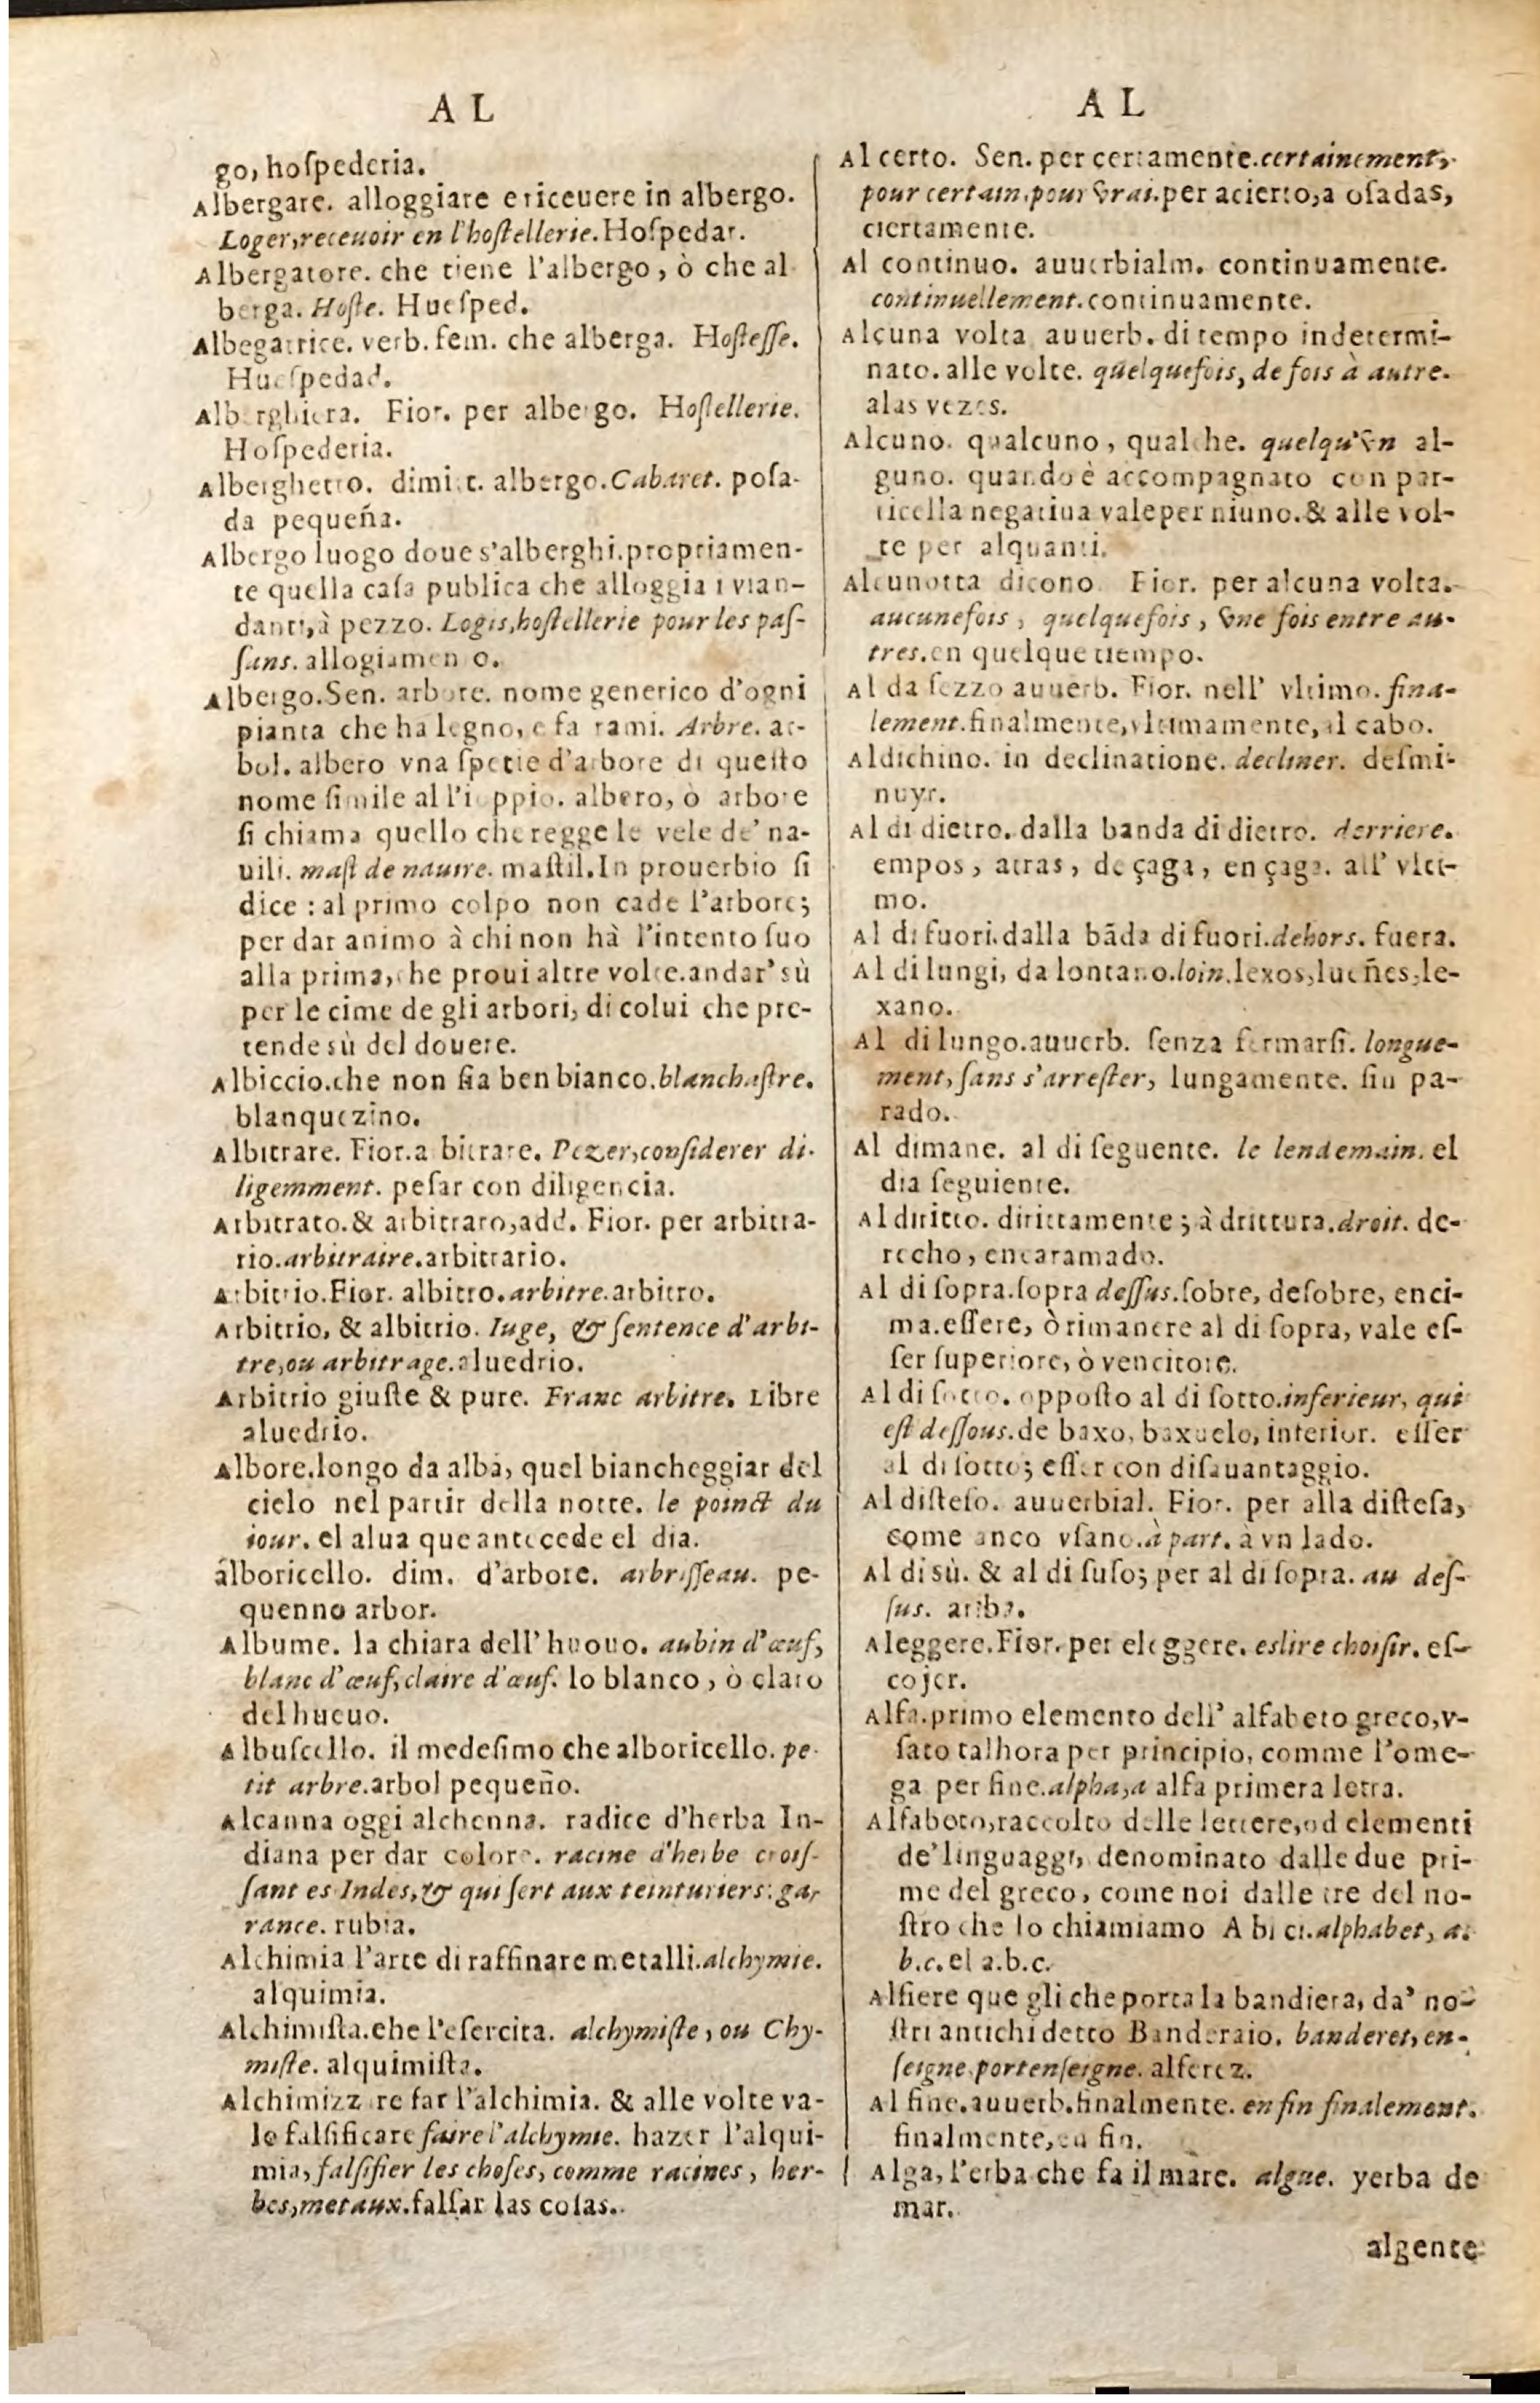 A L
go, hoſpederia.
Albergare. alloggiare e riceuere in albergo.
Loger, receuoir en l'hoſtellerie. Hoſpedar.
Albergatore. che tiene l'albergo, ò che al
berga. Hoſte. Hueſped.
Albegatrice. verb. fem. che alberga. Hoſteſſe.
Hueſpedad.
Alberghiera. Fior. per albergo. Hoſtellerie.
Hoſpederia.
Alberghetto. dimi t. albergo. Cabaret. poſa-
da pequeña.
Albergo luogo doue s'alberghi. propriamen-
te quella caſa publica che alloggia i vian-
danti, à pezzo. Logis, hoſtellerie pour les paſ-
ſans. allogiamen o.
Albergo. Sen. arbore. nome generico d'ogni
pianta che ha legno, e fa rami. Arbre. ar-
bol. albero vna ſpetie d'arbore di queſto
nome ſimile al l'i ppio. albero, ò arbore
ſi chiama quello che regge le vele de' na-
uili. maſt de nauire. maſtil. In prouerbio ſi
dice : al primo colpo non cade l'arbore;
per dar animo à chi non hà l'intento ſuo
alla prima, che proui altre volte. andar' sù
per le cime de gli arbori, di colui che pre-
tende sù del douere.
Albiccio. che non ſia ben bianco. blanchaſtre.
blanquezino.
Albitrare. Fior. a bitrare. Pezer, conſiderer di-
ligemment. peſar con diligencia.
Arbitrato. & arbitraro, add. Fior. per arbitra-
rio. arbitraire. arbitrario.
Arbitrio. Fior. albitro. arbitre. arbitro.
Arbitrio, & albitrio. Iuge, & ſentence d'arbi-
tre, ou arbitrage. aluedrio.
Arbitrio giuſte & pure. Franc arbitre. Libre
aluedrio.
Albore. longo da alba, quel biancheggiar del
cielo nel partir della notte. le poinct du
iour. el alua que antecede el dia.
alboricello. dim. d'arbore. arbriſſeau. pe-
quenno arbor.
Albume. la chiara dell' huouo. aubin d'œuf,
blanc d'œuf, claire d'œuf. lo blanco, ò claro
del hueuo.
Albuſcello. il medeſimo che alboricello. pe-
tit arbre. arbol pequeño.
Alcanna oggi alchenna. radice d'herba In-
diana per dar colore. racine d'herbe croiſ-
ſant es Indes, & qui ſert aux teinturiers: ga,
rance. rubia.
Alchimia l'arte di raffinare metalli. alchymie.
alquimia.
Alchimiſta. che l'eſercita. alchymiſte, ou Chy-
miſte. alquimiſta.
Alchimizzare far l'alchimia. & alle volte va-
le falſificare faire l'alchymie. hazer l'alqui-
mia, falſifier les choſes, comme racines, her-
bes, metaux. falſar las coſas.
A L
Al certo. Sen. per certamente. certainement,
pour certain. pour vrai. per acierto, a oſadas,
ciertamente.
Al continuo. auuerbialm. continuamente.
continuellement. continuamente.
Alcuna volta auuerb. di tempo indetermi-
nato. alle volte. quelquefois, de fois à autre.
alas vezes.
Alcuno. qualcuno, qualche. quelqu'vn al-
guno. quando è accompagnato con par-
ticella negatiua vale per niuno. & alle vol-
te per alquanti.
Alcunotta dicono Fior. per alcuna volta.
aucunefois, quelquefois, vne fois entre au-
tres. en quelque tiempo.
Al da ſezzo auuerb. Fior. nell' vltimo. fina-
lement. finalmente, vltimamente, al cabo.
Aldichino. in declinatione. decliner. deſmi-
nuyr.
Al di dietro. dalla banda di dietro. derriere.
empos, atras, de çaga, en çaga. all' vlti-
mo.
Al di fuori. dalla bãda di fuori. dehors. fuera.
Al di lungi, da lontano. loin. lexos, lueñes, le-
xano.
Al di lungo. auuerb. ſenza fermarſi. longue-
ment, ſans s'arreſter, lungamente. ſin pa-
rado.
Al dimane. al di ſeguente. le lendemain. el
dia ſeguiente.
Al diritto. dirittamente ; à drittura. droit. de-
recho, encaramado.
Al di ſopra. ſopra deſſus. ſobre, deſobre, enci-
ma. eſſere, ò rimanere al di ſopra, vale eſ-
ſer ſuperiore, ò vencitore.
Al di ſotto. oppoſto al di ſotto. inferieur, qui
eſt deſſous. de baxo, baxuelo, interior. eſſer
al di ſotto; eſſer con diſauantaggio.
Al diſteſo. auuerbial. Fior. per alla diſteſa,
come anco vſano. à part. à vn lado.
Al di sù. & al di ſuſo; per al di ſopra. au deſ-
ſus. ariba.
Aleggere. Fior. per eleggere. eslire choiſir. eſ-
cojer.
Alfa. primo elemento dell' alfabeto greco, v-
ſato talhora per principio, comme l'ome-
ga per fine. alpha, a alfa primera letra.
Alfaboto, raccolto delle lettere, od elementi
de' linguaggi, denominato dalle due pri-
me del greco, come noi dalle tre del no-
ſtro che lo chiamiamo A bi ci. alphabet, a.
b.c. el a.b.c.
Alfiere que gli che porta la bandiera, da' no-
ſtri antichi detto Banderaio. banderet, en-
ſeigne. portenſeigne. alferez.
Al fine. auuerb. finalmente. en fin finalement.
finalmente, en fin.
Alga, l'erba che fa il mare. algue. yerba de
mar.
algente